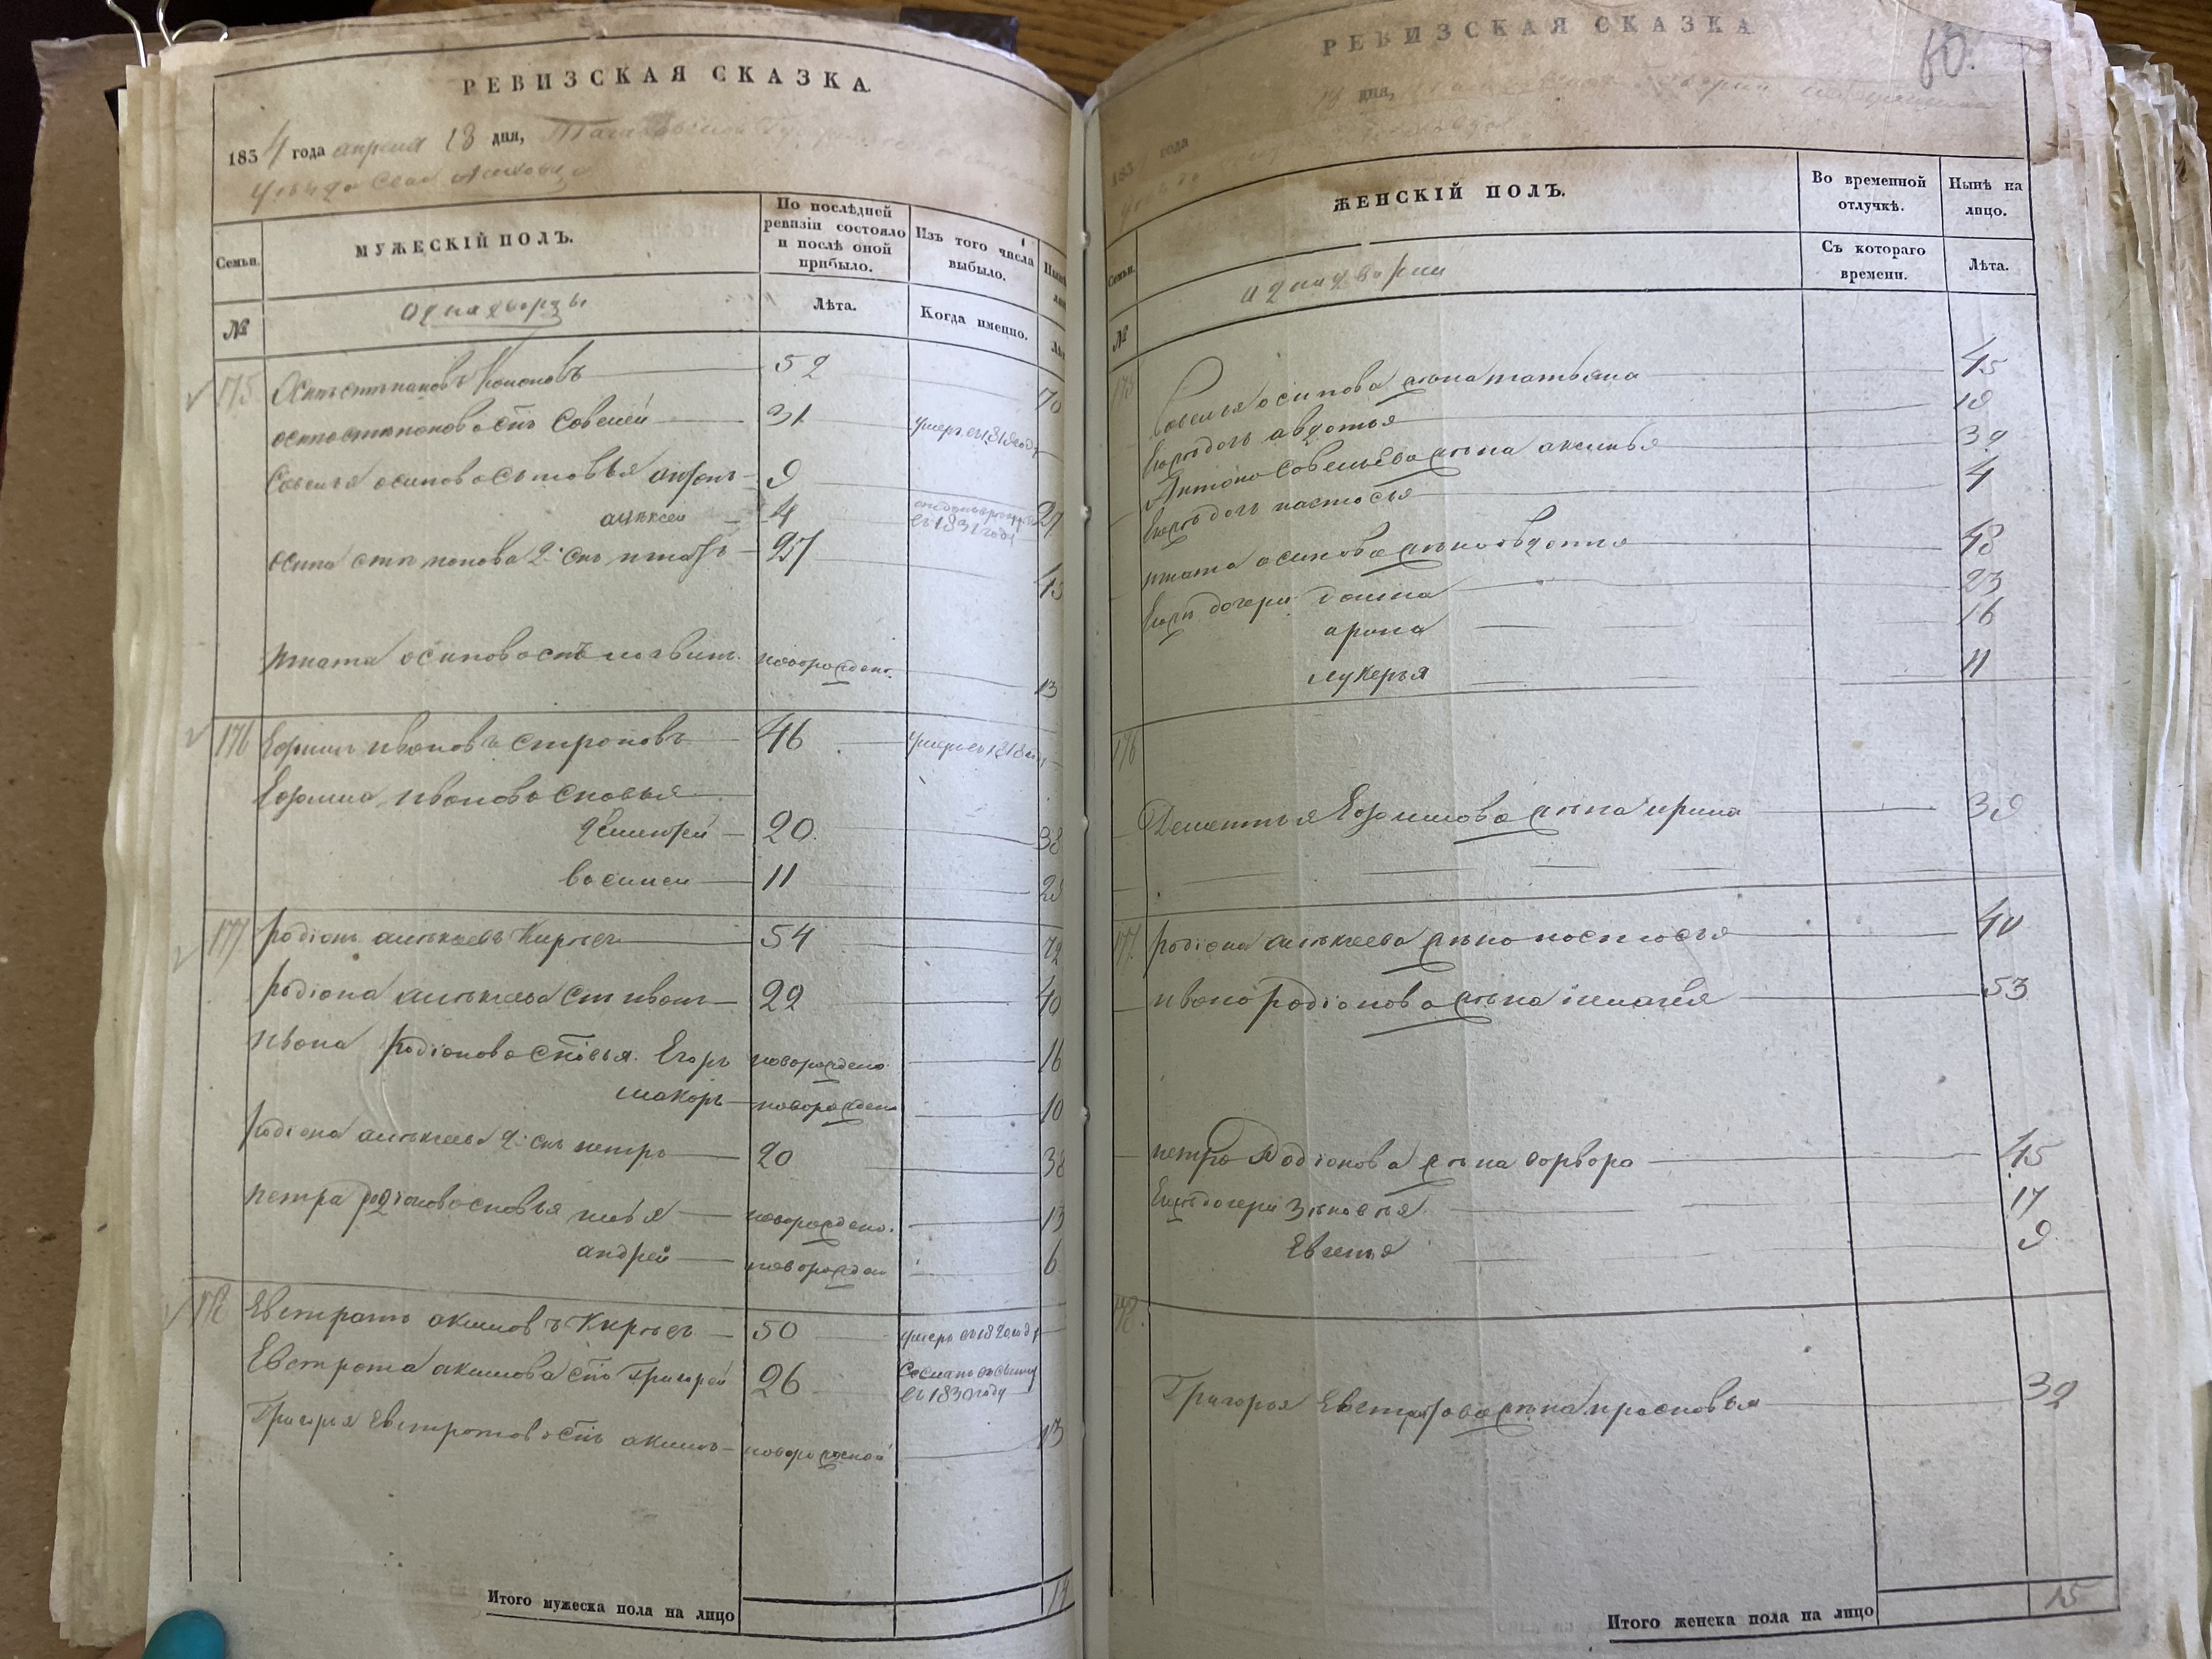 РЕВИЗСКАЯ СКАЗКА.
1834 года апреля 13 дня, Тамбовской
уезда села
Семьи.
МУЖЕСКІЙ ПОЛЪ.
По послѣдней ревизіи состояло и послѣ оной прибыло.
Изъ того числа выбыло.
№
однодворцы
Лѣта.
Когда именно.
175 Осипъ степановъ Кононовъ 52 70
осипа степанова снъ Совелей 31 умеръ въ 1818 году
Совелья осипова сыновья антонъ 9 27
алексей 4 въ 1831 году
осипа степанова 2й снъ игнатъ 27 45
игната осипова снъ логвинъ новорожденъ 13
176 Ефимъ ивановъ 46 умеръ въ 1818 году
Ефима иванова сновья
дементей 20 38
василей 11 29
177 Родіонъ алексеевъ Киреевъ 54 72
Родіона алексеева снъ иванъ 22 40
ивана Родіонова сновья Егоръ новорожденъ 16
макаръ новорожденъ 10
Родіона алексеева 2й снъ петръ 20 38
петра родіонова сновья илья новорожденъ 13
андрей новорожденъ 6
178 Евстратъ акимовъ Киреевъ 50 умеръ въ 1820 году
Евстрата акимова снъ Григорей 26 въ 1830 году
Григорья Евстратова снъ акимъ новорожденой 13
Итого мужеска пола на лицо 14
РЕВИЗСКАЯ СКАЗКА
60.
183 года 13 дня,
Семьи.
ЖЕНСКІЙ ПОЛЪ.
Во временной отлучкѣ.
Нынѣ на лицо.
№
однодворки
Съ котораго времени.
Лѣта.
175 Совелья осипова жена татьяна 45
Ево дочь авдотья 19
Антона Совельева жена аксинья 32
Ево дочь настосья 4
игната осипова жена овдотья 48
Ево дочери домна 23
арина 16
лукерья 11
176
Дементья Ефимова жена ирина 39
177 Родіона алексеева жена ностосья 40
ивана родіонова жена 53
петра Родіонова жена ворвора 45
Ево дочери Зиновья 17
Евгенья 9
178.
Григорья Евстратова жена просковья 32
Итого женска пола на лицо 15